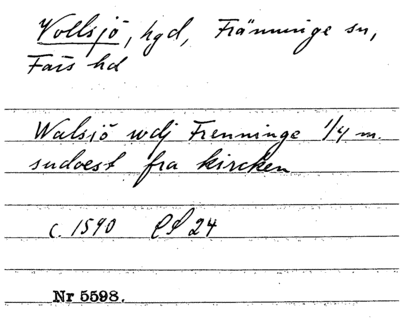 Vollsjö, hgd, Fränninge sn,
Färs hd
Walsjö wdj Frenninge 1/4 m.
sudoest fra kircken
c. 1590 PS 24
Nr 5598.